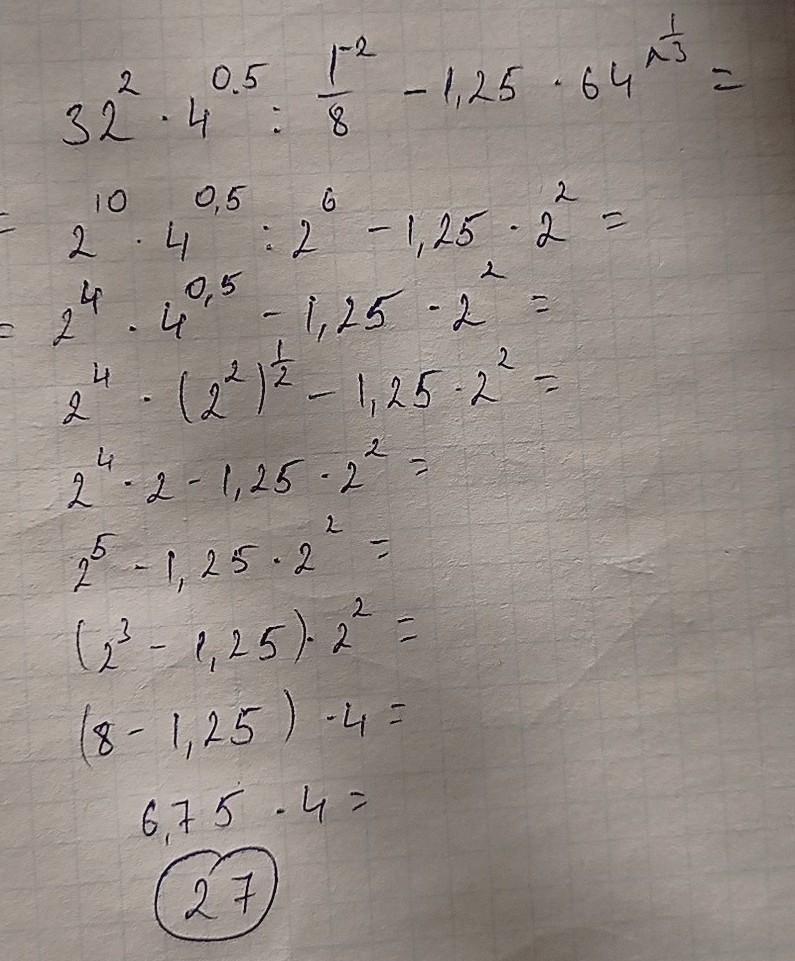 32² · 4^0.5 : 1/8^-2 - 1,25 · 64^1/3 =
= 2^10 · 4^0,5 : 2^6 - 1,25 · 2² =
= 2^4 · 4^0,5 - 1,25 · 2² =
2^4 · (2²)^1/2 - 1,25 · 2² =
2^4 · 2 - 1,25 · 2² =
2^5 - 1,25 · 2² =
(2³ - 1,25) · 2² =
(8 - 1,25) · 4 =
6,75 · 4 =
27